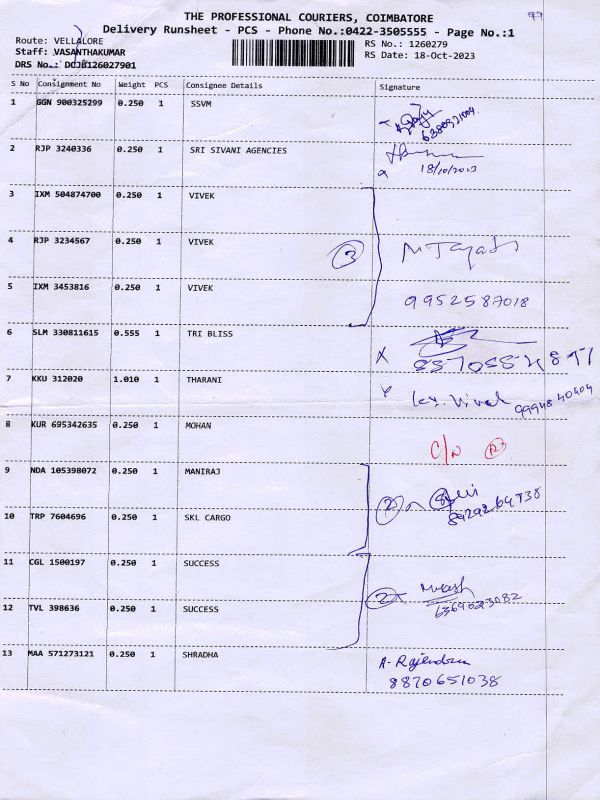 99
THE PROFESSIONAL COURIERS, COIMBATORE
Delivery Runsheet - PCS - Phone No.:0422-3505555 - Page No.:1
Route: VELLALORE
RS No.: 1260279
Staff: VASANTHAKUMAR
RS Date: 18-Oct-2023
DRS No.: DCJB126027901
S No Consignment No Weight PCS Consignee Details Signature
1 GGN 900325299 0.250 1 SSVM
2 RJP 3240336 0.250 1 SRI SIVANI AGENCIES
18/10/2023
3 IXM 504874700 0.250 1 VIVEK
4 RJP 3234567 0.250 1 VIVEK 3
5 IXM 3453816 0.250 1 VIVEK 9952587018
6 SLM 330811615 0.555 1 TRI BLISS
7 KKU 312020 1.010 1 THARANI
8 KUR 695342635 0.250 1 MOHAN C/N
9 NDA 105398072 0.250 1 MANIRAJ 2
10 TRP 7604696 0.250 1 SKL CARGO
11 CGL 1500197 0.250 1 SUCCESS
12 TVL 398636 0.250 1 SUCCESS 2
13 MAA 571273121 0.250 1 SHRADHA A-Rajendran
8870651038